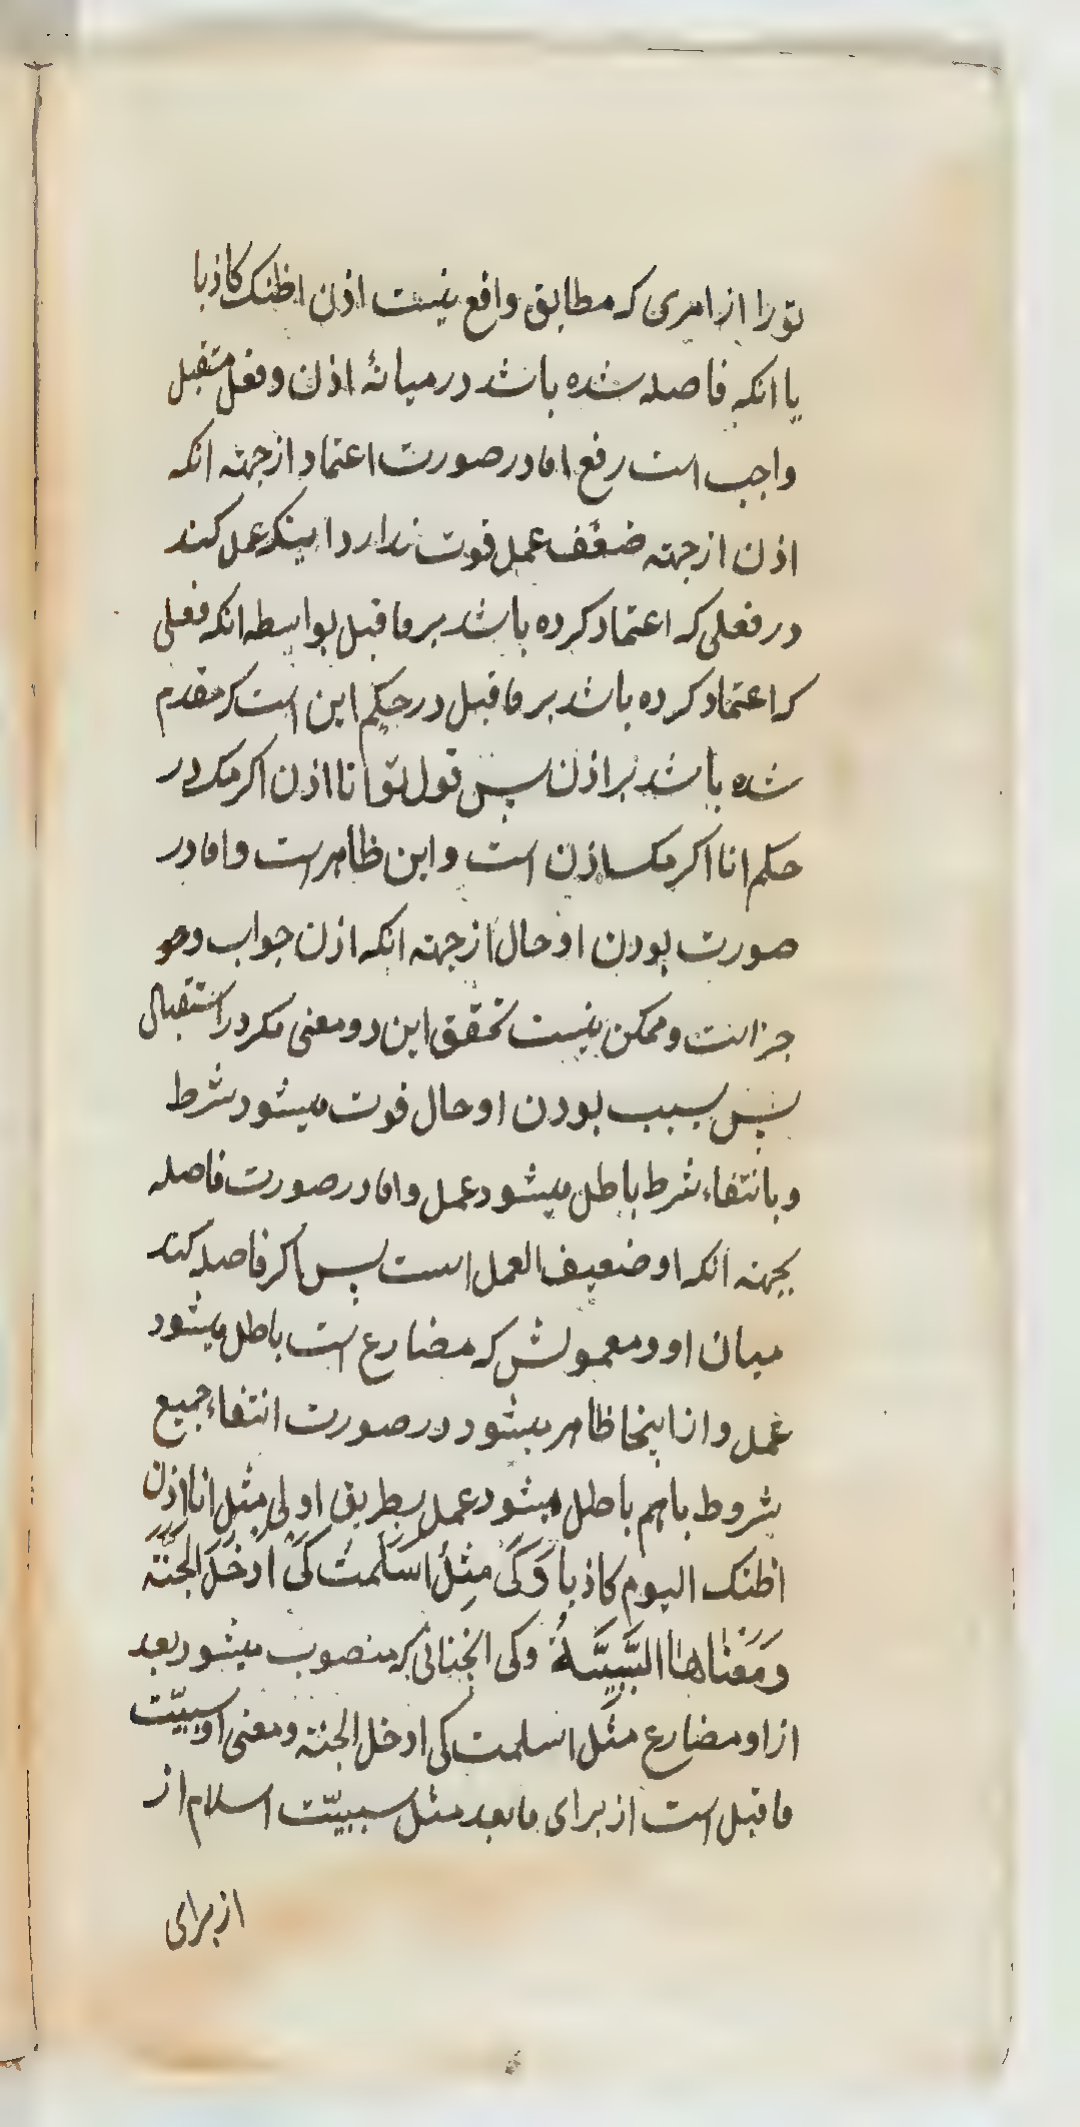 تو را از امری که مطابق واقع نیست اذن اظنک کاذبا
یا انکه فاصله شده باشد در میانهٔ اذن و فعل مستقبل
واجب است رفع اما در صورت اعتماد از جهته انکه
اذن از جهته ضعف عمل قوت ندارد اینکه عمل کند
در فعلی که اعتماد کرده باشد بر ماقبل بواسطه انکه فعلی
که اعتماد کرده باشد بر ماقبل در حکم این است که مقدم
شده باشد بر اذن پس قول تو انا اذن اکرمک در
حکم انا اکرمک اذن است و این ظاهر است و اما در
صورت بودن او حال از جهته انکه اذن جواب و
جزاست و ممکن نیست تحقق این دو معنی مکر در استقبال
پس بسبب بودن او حال فوت میشود شرط
و بانتفاء شرط باطل میشود عمل و اما در صورت فاصله
بجهته انکه او ضعیف العمل است پس اکر فاصله کند
میان او و معمولش که مضارع است باطل میشود
عمل و از اینجا ظاهر میشود در صورت انتفاء جمیع
شروط باهم باطل میشود عمل بطریق اولی مثل انا اذن
اظنک الیوم کاذبا وَکَی مِثلُ اَسلَمتُ کَی اَدخُلَ الجَنَّةَ
وَمَعناهَا السَّبَبِیَّةُ و کی انچنانی که منصوب میشود بعد
از او مضارع مثل اسلمت کی ادخل الجنة و معنی او سببیّت
ماقبل است از برای مابعد مثل سببیّت اسلام از
از برای